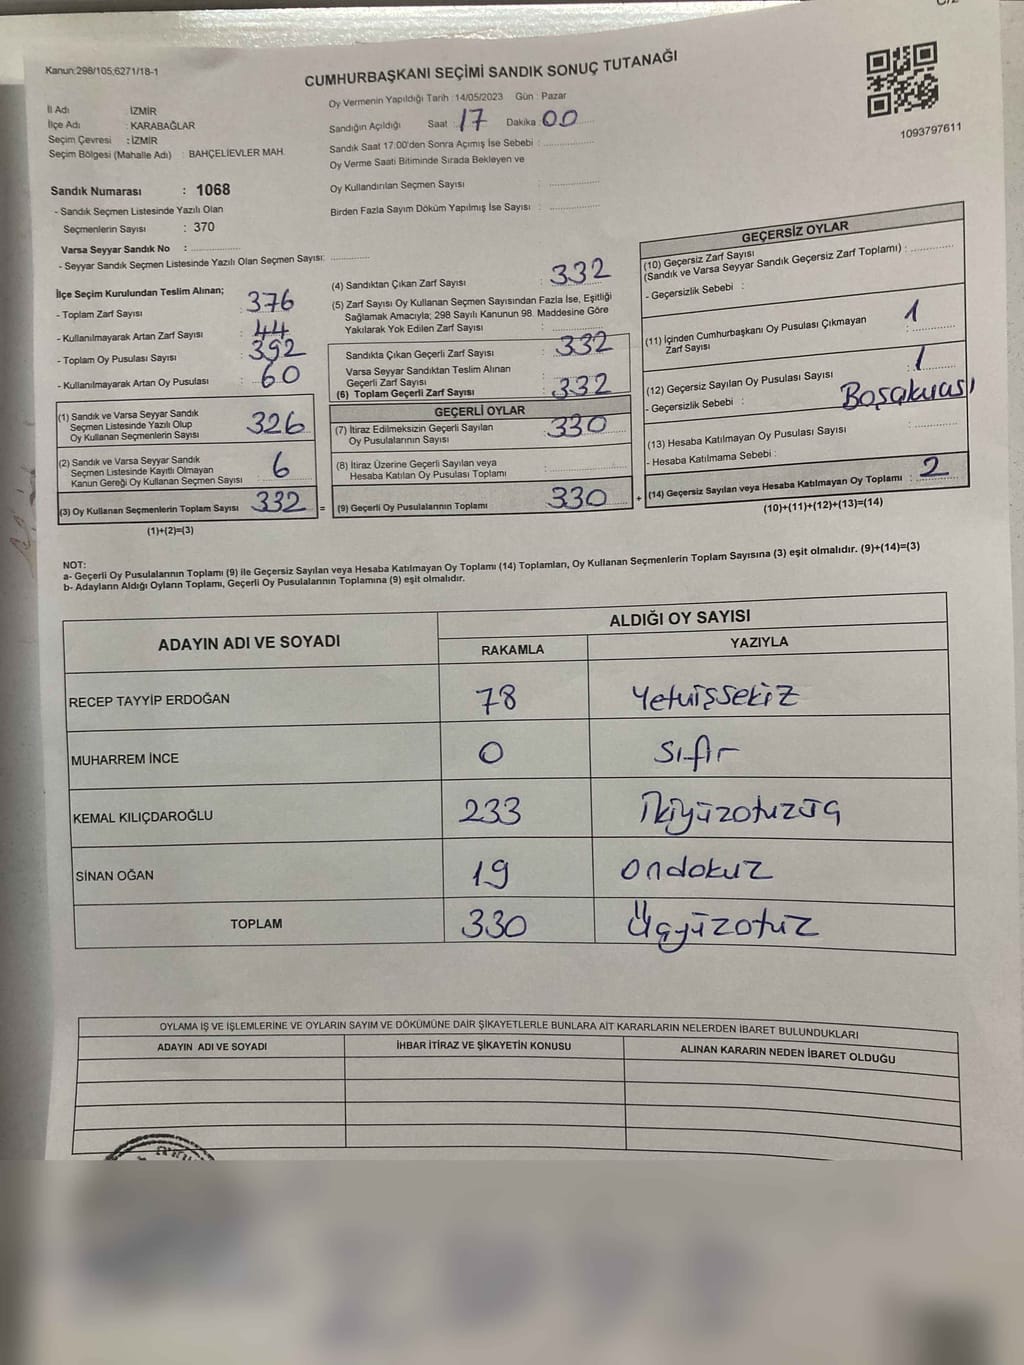 Kanun:298/105,6271/18-1
CUMHURBAŞKANI SEÇİMİ SANDIK SONUÇ TUTANAĞI
Oy Vermenin Yapıldığı Tarih :14/05/2023 Gün : Pazar
Sandığın Açıldığı Saat : 17 Dakika : 00
Sandık Saat 17.00'den Sonra Açımış İse Sebebi :
Oy Verme Saati Bitiminde Sırada Bekleyen ve
Oy Kullandırılan Seçmen Sayısı :
Birden Fazla Sayım Döküm Yapılmış İse Sayısı :
1093797611
İl Adı : İZMİR
İlçe Adı : KARABAĞLAR
Seçim Çevresi : İZMİR
Seçim Bölgesi (Mahalle Adı) : BAHÇELİEVLER MAH.
Sandık Numarası : 1068
- Sandık Seçmen Listesinde Yazılı Olan
Seçmenlerin Sayısı : 370
Varsa Seyyar Sandık No :
- Seyyar Sandık Seçmen Listesinde Yazılı Olan Seçmen Sayısı:
İlçe Seçim Kurulundan Teslim Alınan;
- Toplam Zarf Sayısı : 376
- Kullanılmayarak Artan Zarf Sayısı : 44
- Toplam Oy Pusulası Sayısı : 392
- Kullanılmayarak Artan Oy Pusulası : 60
(1) Sandık ve Varsa Seyyar Sandık
Seçmen Listesinde Yazılı Olup
Oy Kullanan Seçmenlerin Sayısı : 326
(2) Sandık ve Varsa Seyyar Sandık
Seçmen Listesinde Kayıtlı Olmayan
Kanun Gereği Oy Kullanan Seçmen Sayısı : 6
(3) Oy Kullanan Seçmenlerin Toplam Sayısı : 332 =
(1)+(2)=(3)
(4) Sandıktan Çıkan Zarf Sayısı : 332
(5) Zarf Sayısı Oy Kullanan Seçmen Sayısından Fazla İse, Eşitliği
Sağlamak Amacıyla; 298 Sayılı Kanunun 98. Maddesine Göre
Yakılarak Yok Edilen Zarf Sayısı :
Sandıkta Çıkan Geçerli Zarf Sayısı : 332
Varsa Seyyar Sandıktan Teslim Alınan
Geçerli Zarf Sayısı :
(6) Toplam Geçerli Zarf Sayısı : 332
GEÇERLİ OYLAR
(7) İtiraz Edilmeksizin Geçerli Sayılan
Oy Pusulalarının Sayısı : 330
(8) İtiraz Üzerine Geçerli Sayılan veya
Hesaba Katılan Oy Pusulası Toplamı :
(9) Geçerli Oy Pusulalarının Toplamı : 330 +
GEÇERSİZ OYLAR
(10) Geçersiz Zarf Sayısı
(Sandık ve Varsa Seyyar Sandık Geçersiz Zarf Toplamı) :
- Geçersizlik Sebebi :
(11) İçinden Cumhurbaşkanı Oy Pusulası Çıkmayan
Zarf Sayısı : 1
(12) Geçersiz Sayılan Oy Pusulası Sayısı : 1
- Geçersizlik Sebebi :
(13) Hesaba Katılmayan Oy Pusulası Sayısı :
- Hesaba Katılmama Sebebi :
(14) Geçersiz Sayılan veya Hesaba Katılmayan Oy Toplamı : 2
(10)+(11)+(12)+(13)=(14)
NOT:
a- Geçerli Oy Pusulalarının Toplamı (9) ile Geçersiz Sayılan veya Hesaba Katılmayan Oy Toplamı (14) Toplamları, Oy Kullanan Seçmenlerin Toplam Sayısına (3) eşit olmalıdır. (9)+(14)=(3)
b- Adayların Aldığı Oyların Toplamı, Geçerli Oy Pusulalarının Toplamına (9) eşit olmalıdır.
ADAYIN ADI VE SOYADI ALDIĞI OY SAYISI
RAKAMLA YAZIYLA
RECEP TAYYİP ERDOĞAN 78 Yetmişsekiz
MUHARREM İNCE 0 Sıfır
KEMAL KILIÇDAROĞLU 233 İkiyüzotuzüç
SİNAN OĞAN 19 Ondokuz
TOPLAM 330 Üçyüzotuz
OYLAMA İŞ VE İŞLEMLERİNE VE OYLARIN SAYIM VE DÖKÜMÜNE DAİR ŞİKAYETLERLE BUNLARA AİT KARARLARIN NELERDEN İBARET BULUNDUKLARI
ADAYIN ADI VE SOYADI İHBAR İTİRAZ VE ŞİKAYETİN KONUSU ALINAN KARARIN NEDEN İBARET OLDUĞU